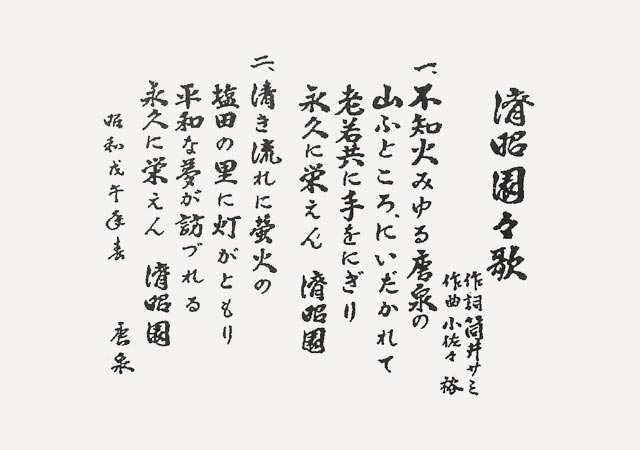 済昭園々歌
作詞 筒井サミ
作曲 小佐々 裕
一、不知火みゆる唐泉の
山ふところ、にいだかれて
老若共に手をにぎり
永久に栄えん 済昭園
二、清き流れに螢火の
塩田の里に灯がともり
平和な夢が訪づれる
永久に栄えん 済昭園
昭和戊午年春 唐泉